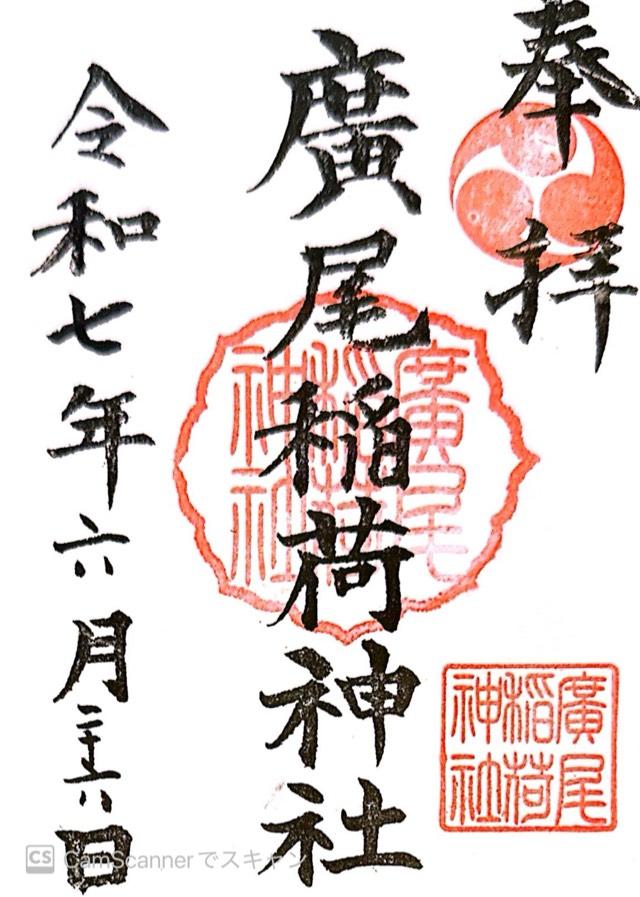 奉拝
廣尾稲荷神社
令和七年六月二十六日
廣尾
稲荷
神社
廣尾
稲荷
神社
CS CamScannerでスキャン